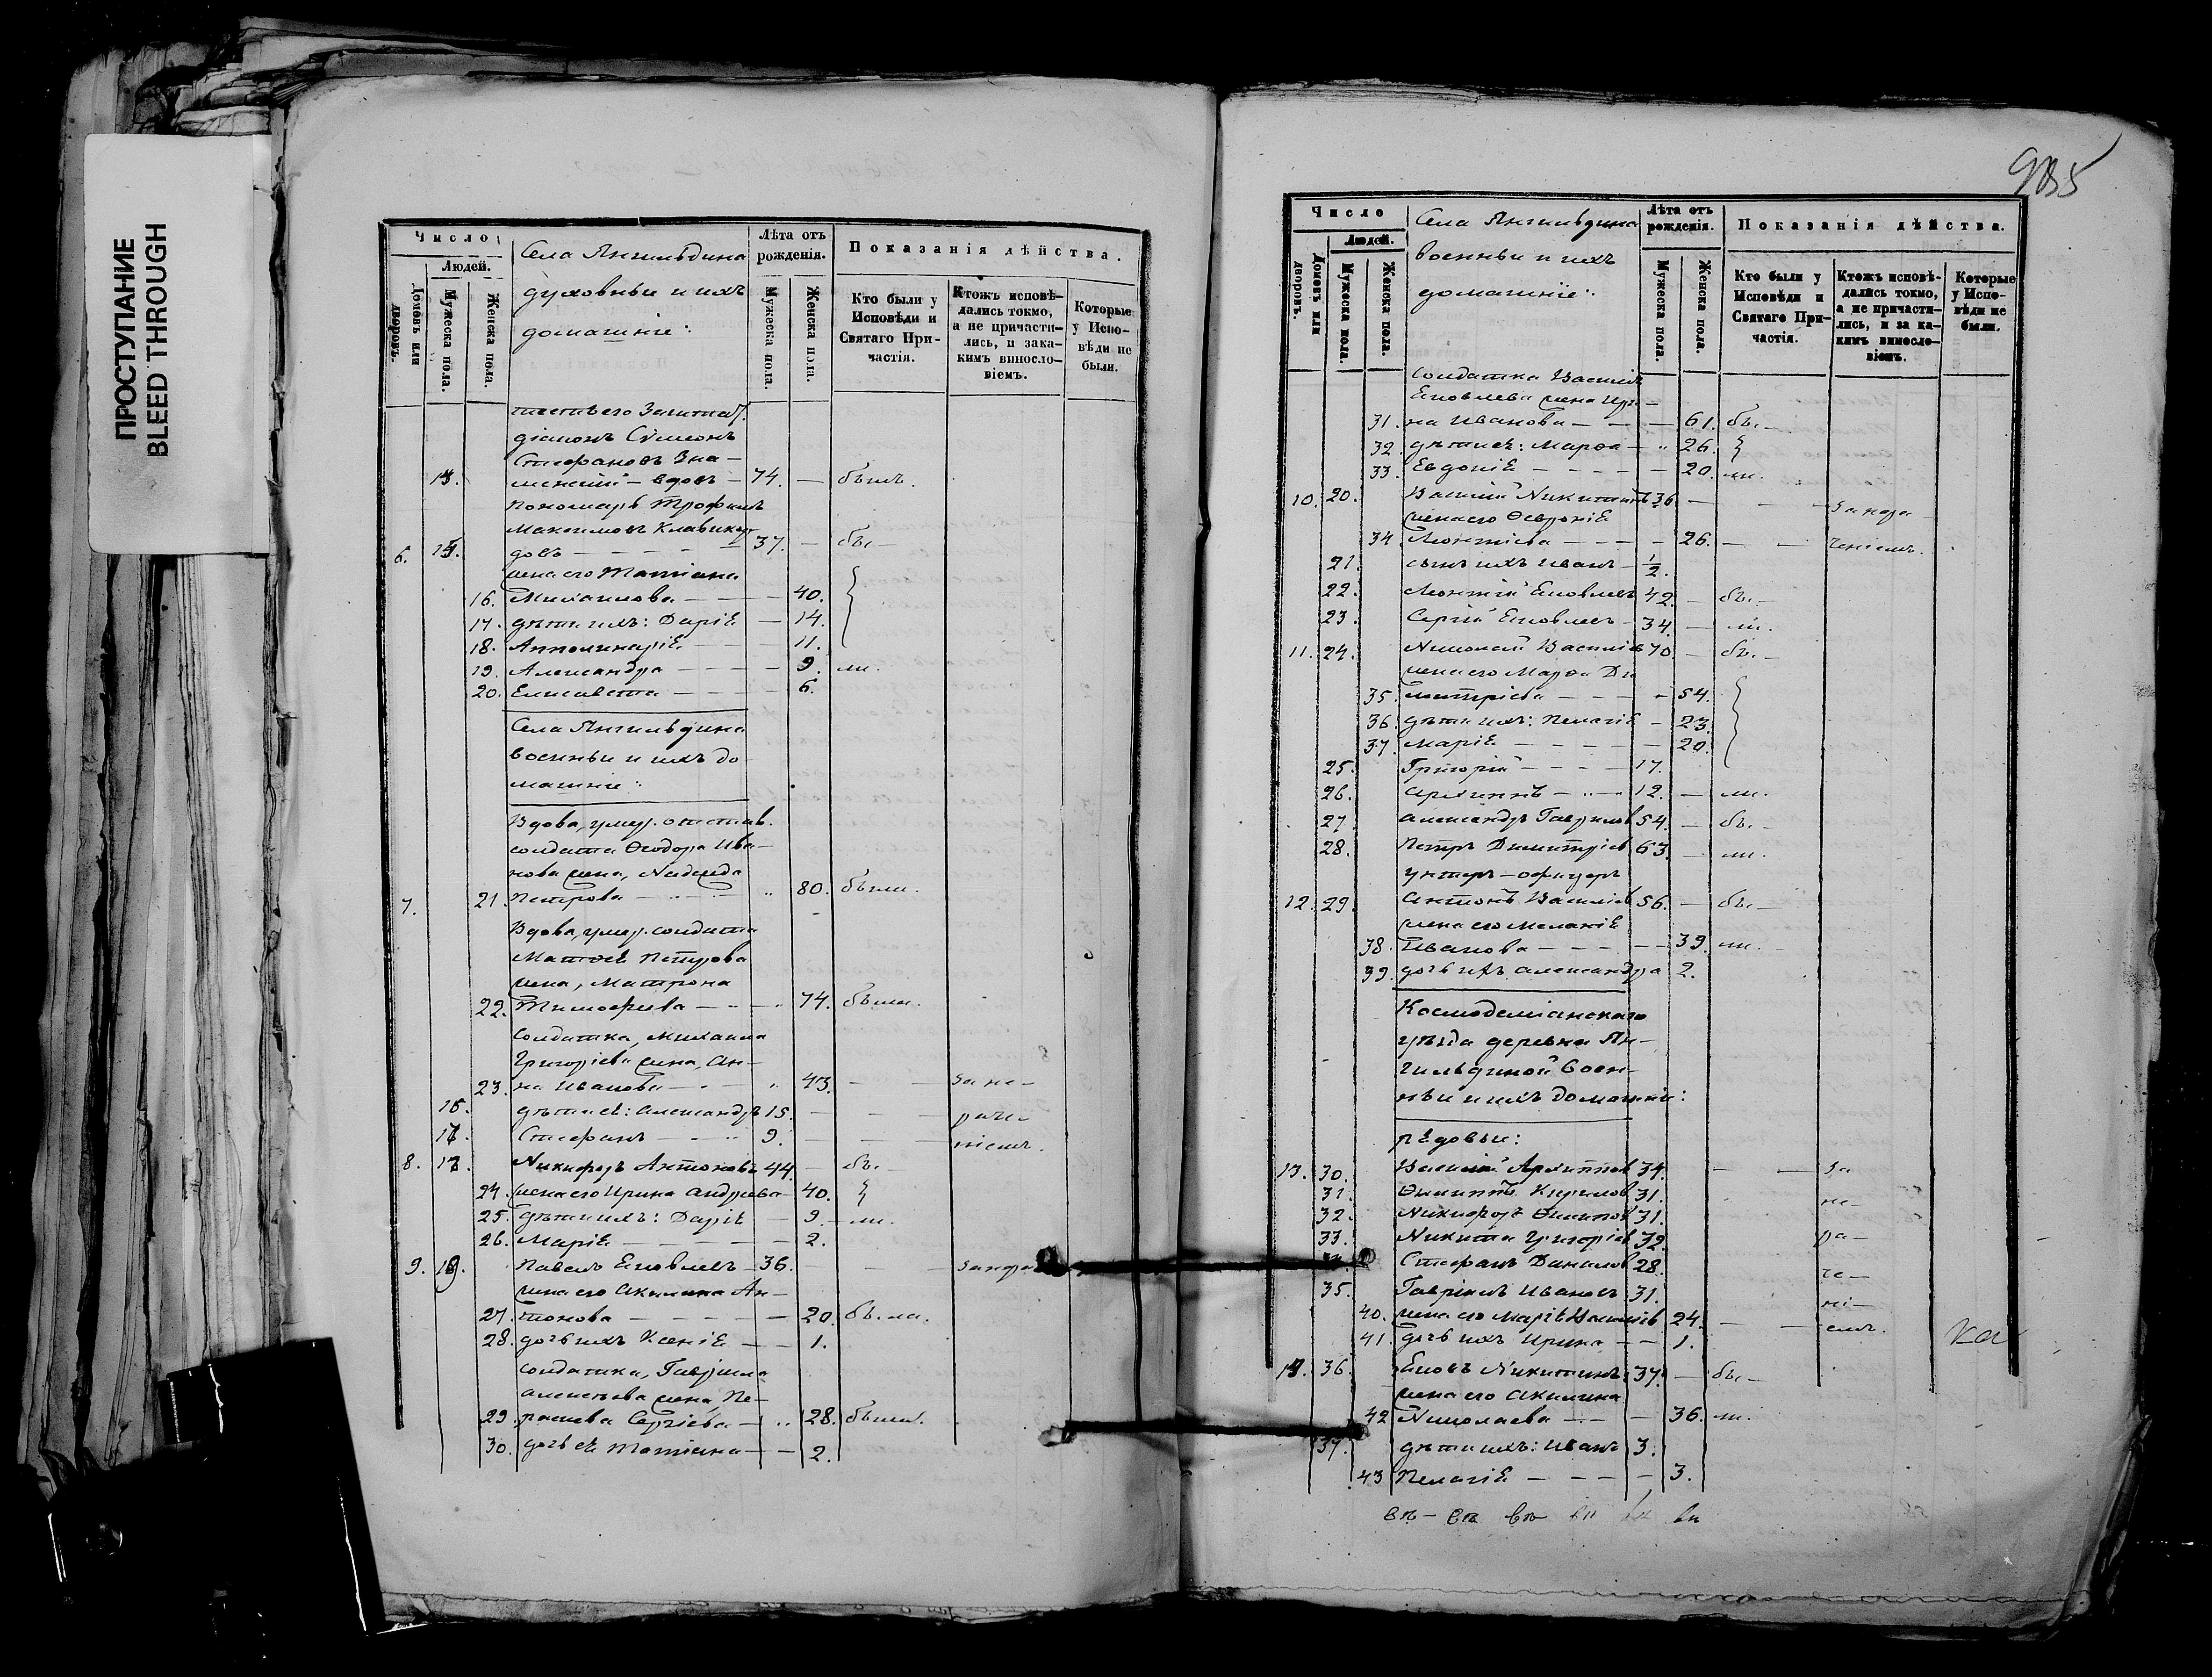 ПРОСТУПАНИЕ
BLEED THROUGH
Число
Людей.
Домовъ или дворовъ.
Мужеска пола.
Женска пола.
Села Янгильдина
духовныи и ихъ
домашніе:
Лѣта отъ рожденія.
Мужеска пола.
Женска пола.
Показанія дѣйства.
Кто были у Исповѣди и Святаго Причастія.
Ктожъ исповѣдались токмо, а не причастились, и закакимъ винословіемъ.
Которые у Исповѣди не были.
тесть его Заштат.
діаконъ Сѵмеонъ
Стефановъ Зна-
менскій - вдовъ - 74. — былъ.
Пономарь Трофимъ
Максимовъ
6. 15. довъ — 37. — бы-
жена его Татіана
16. Михаилова — 40.
17. дѣти ихъ: Дарія — 14.
18. Апполинарія — 11.
19. Александра — 9. ли.
20. Елисавета — 6.
Села Янгильдина
военныи и ихъ до
машніе:
Вдова, умер. отстав.
солдата Ѳеодора Ива-
нова жена, Надежда
7. 21. Петрова — 80. были.
Вдова, умер. солдата
Матвея Петрова
жена, Матрона
22. Тимофеева — 74. были.
Солдатка, Михаила
Григоріева жена, Ан-
23. на Иванова — 43. — за не-
16. дѣти ея: Александръ 15. — раче-
17. Стефанъ — 9. — ніемъ.
8. Никифоръ Антоновъ 44. — бы-
24. жена его Ирина Андреева - 40.
25. дѣти ихъ: Дарія — 9. - ли.
26. Марія — 2.
9. Павелъ Яковлевъ - 36. —
жена его Акилина Ан-
27. тонова — 20. была.
28. дочь ихъ Ксенія — 1.
солдатка, Гавріила
Алексѣева жена, Пе-
29. расковья Сергіева — 28. были.
30. дочь ея Татіана — 2.
Число
Людей.
Домовъ или дворовъ.
Мужеска пола.
Женска пола.
Села Янгильдина
военныи и ихъ
домашніе:
Лѣта отъ рожденія.
Мужеска пола.
Женска пола.
Показанія дѣйства.
Кто были у Исповѣди и Святаго Причастія.
Ктожъ исповѣдались токмо, а не причастились, и за какимъ винословіемъ.
Которые у Исповѣди не были.
солдатка Василія
Яковлева жена Ири-
31. на Иванова — 61. бы-
32. дѣти ея: Марѳа — 26.
33. Евдокія — 20. ли.
10. 20. Василій Никитинъ 36 —
жена его Ѳевронія
34 Леонтіева — 26. — ченіемъ.
21. сынъ ихъ Иванъ - 1/2.
22. Леонтій Яковлевъ 42. — бы-
23. Сергій Яковлевъ - 34. — ли.
11. 24. Николай Василіев 70. — бы-
жена его Марѳа Ди
35. митріева — 54.
36. дѣти ихъ: Пелагія — 23.
37. Марія — 20.
25. Григорій — 17.
26. Архиппъ — 12. — ли.
27. Александръ Гаврилов 54. — бы-
28. Петръ Димитріев 63. — ли.
унтеръ-офицеръ
12. 29. Антонъ Василіев 56. — бы-
жена его Меланія
38. Иванова — 39. ли.
39. дочь ихъ Александра 2.
Космодеміанскаго
уѣзда деревни Ян-
гильдиной воен-
ныи и ихъ домашніи:
рядовыи:
13. 30. Василій Архиппов 34. — за
31. Филиппъ Кирилов 31. не-
32. Никифоръ Филипов 31.
33. Никита Григоріев 32. ра-
Стефанъ Данилов 28. че-
35. Гавріилъ Иванов 31. ні-
40. жена его Марія Василіев 24. — емъ.
41. дочь ихъ Ирина — 1.
36. Яковъ Никитинъ 37. — бы-
жена его Акилина
42 Николаева — 36. ли.
37. дѣти ихъ: Иванъ 3.
43 Пелагія — 3.